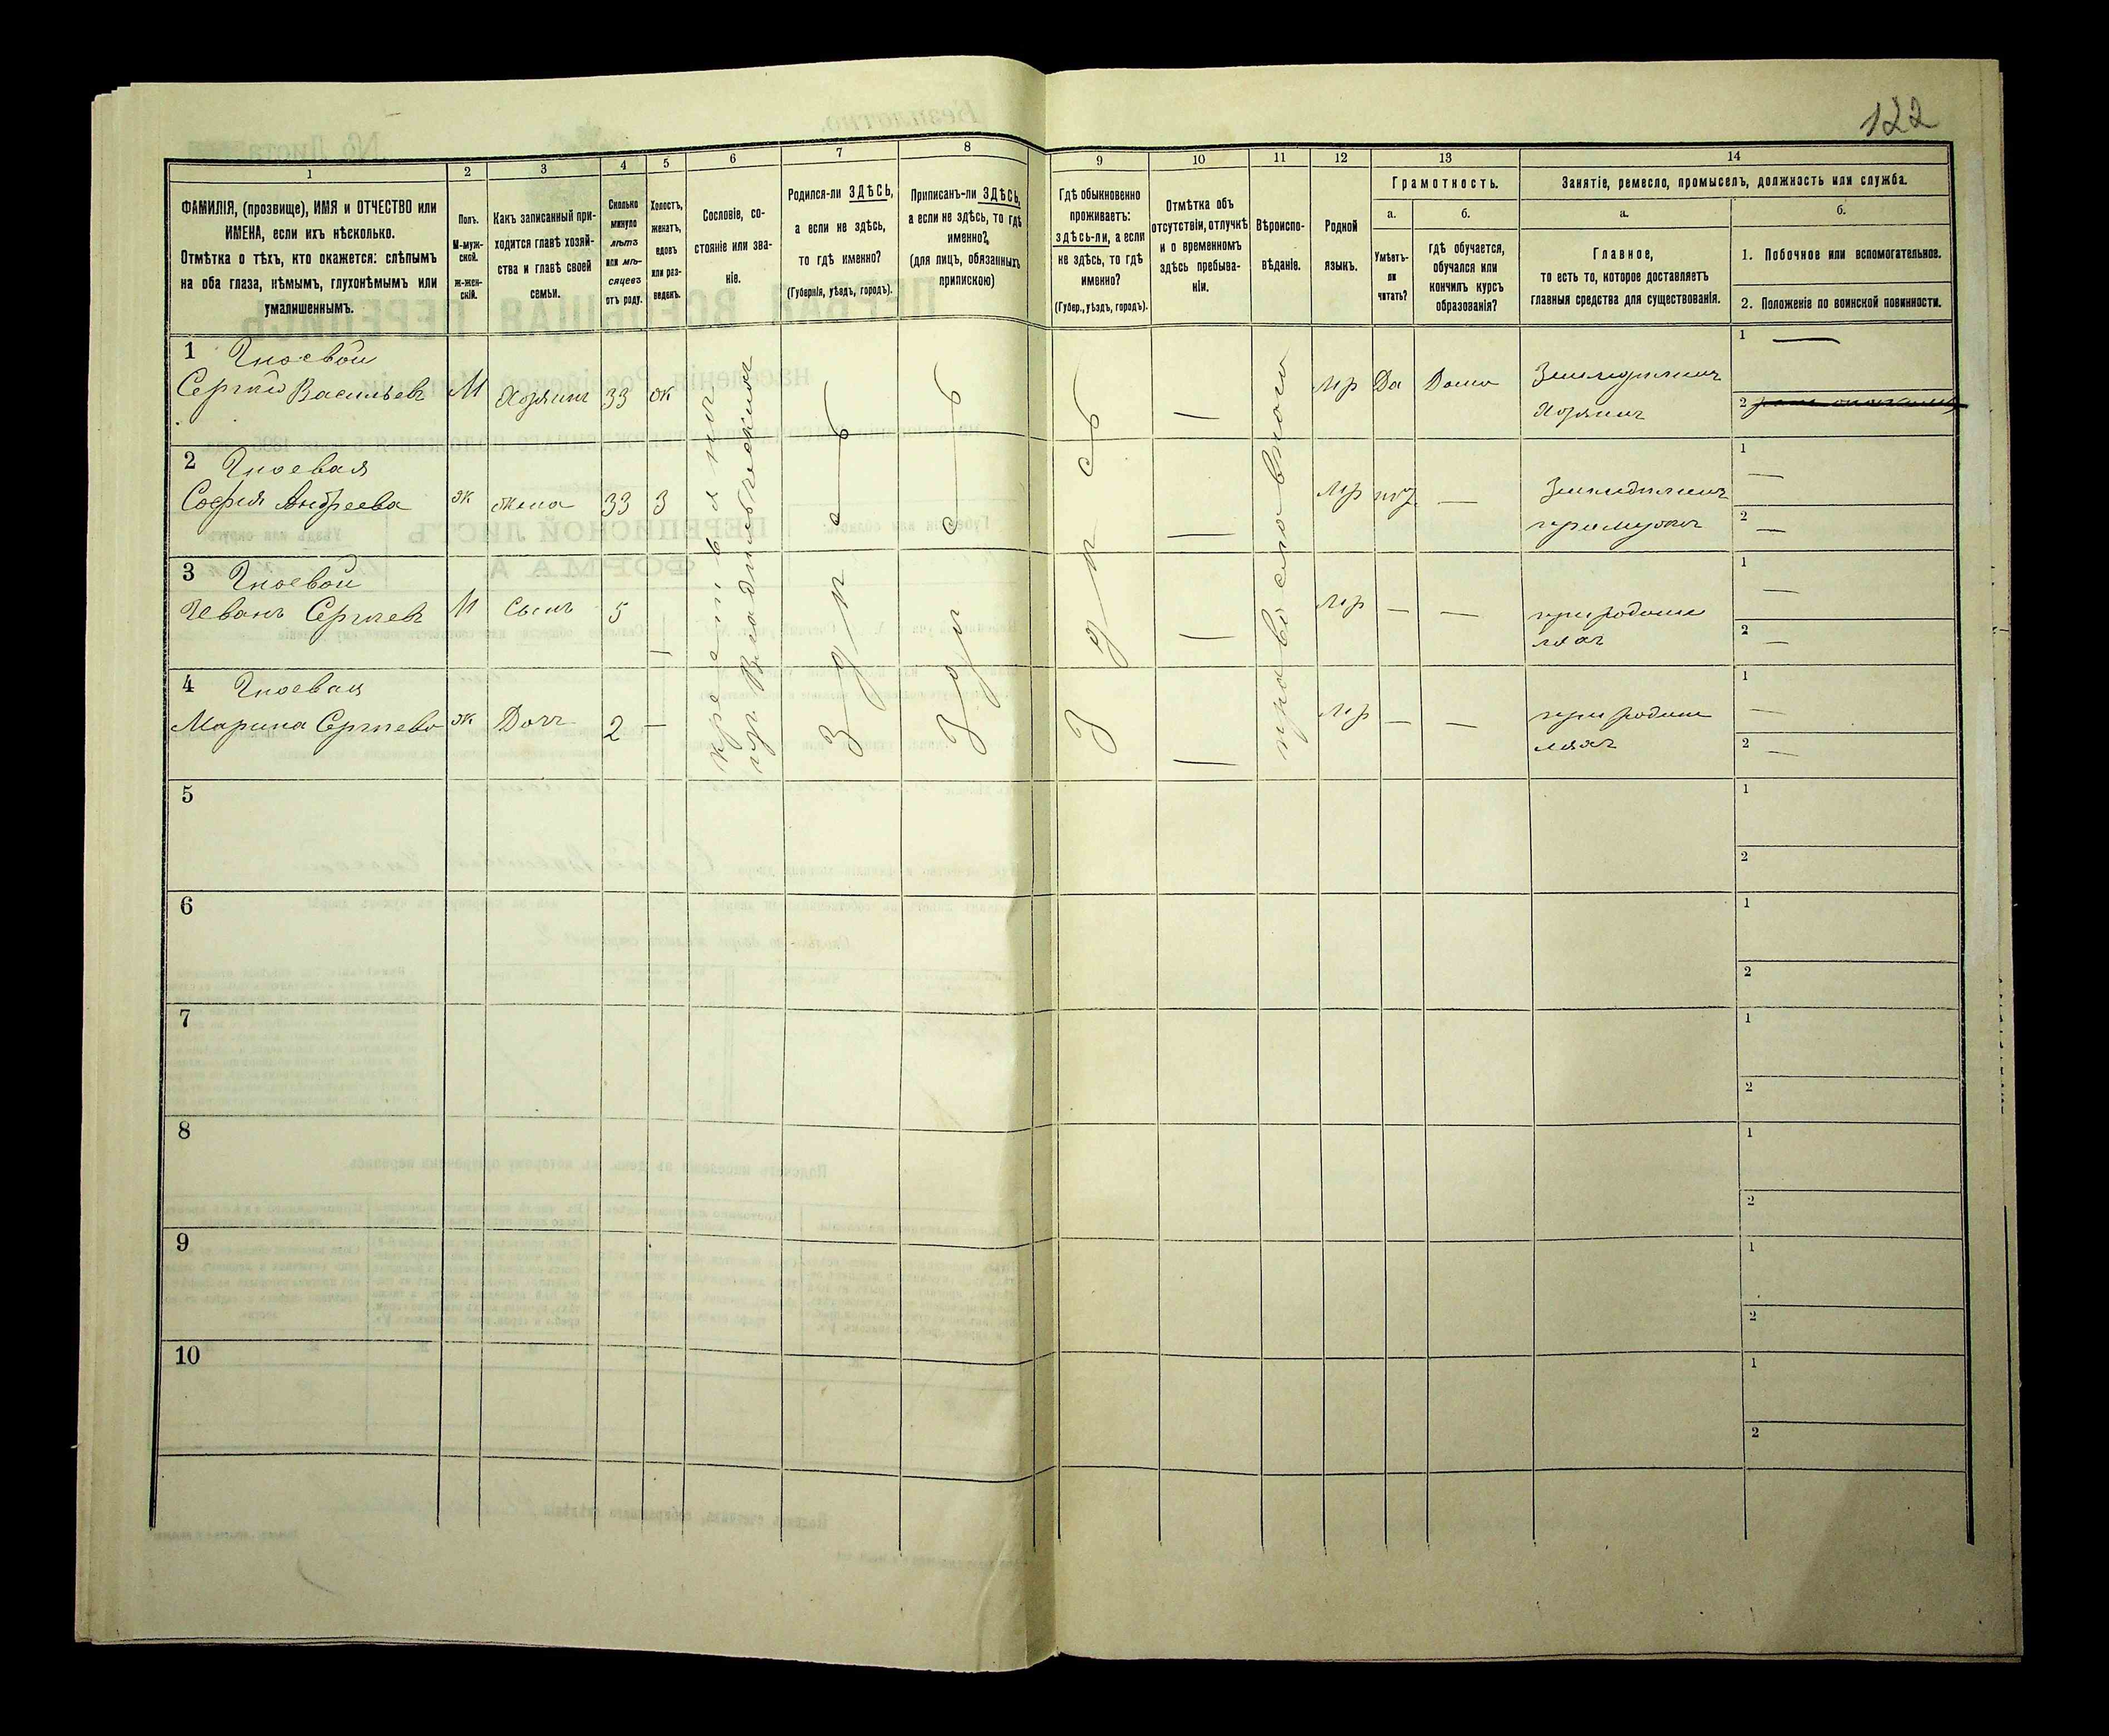 122
1 2 3 4 5 6 7 8 9 10 11 12 13 14
ФАМИЛІЯ, (прозвище), ИМЯ и ОТЧЕСТВО или
ИМЕНА, если ихъ нѣсколько.
Отмѣтка о тѣхъ, кто окажется: слѣпымъ
на оба глаза, нѣмымъ, глухонѣмымъ или
умалишеннымъ.
Полъ.
М-муж-
ской.
ж-жен-
скій.
Какъ записанный при-
ходится главѣ хозяй-
ства и главѣ своей
семьи.
Сколько
минуло
лѣтъ
или мѣ-
сяцевъ
отъ роду.
Холостъ,
женатъ,
вдовъ
или раз-
веденъ.
Сословіе, со-
стояніе или зва-
ніе.
Родился-ли ЗДѢСЬ,
а если не здѣсь,
то гдѣ именно?
(Губернія, уѣздъ, городъ).
Приписанъ-ли ЗДѢСЬ,
а если не здѣсь, то гдѣ
именно?
(для лицъ, обязанныхъ
припискою)
Гдѣ обыкновенно
проживаетъ:
здѣсь-ли, а если
не здѣсь, то гдѣ
именно?
(Губер., уѣздъ, городъ).
Отмѣтка объ
отсутствіи, отлучкѣ
и о временномъ
здѣсь пребыва-
ніи.
Вѣроиспо-
вѣданіе.
Родной
языкъ.
Грамотность.
а.
Умѣетъ-
ли
читать?
б.
гдѣ обучается,
обучался или
кончилъ курсъ
образованія?
Занятіе, ремесло, промыселъ, должность или служба.
а.
Главное,
то есть то, которое доставляетъ
главныя средства для существованія.
б.
1. Побочное или вспомогательное.
2. Положеніе по воинской повинности.
1 Гноевой
Сергѣй Васильевъ М Хозяинъ 33 ж
крестьянинъ
изъ Владѣльческихъ
Здѣсь
Здѣсь
Здѣсь
православнаго
Мр Да Дома Земледѣлецъ
Хозяинъ
1 —
2
2 Гноевая
Софія Андреева ж жена 33 З — Мр нѣт — Земледѣлецъ
при мужѣ
1 —
2 —
3 Гноевой
Иванъ Сергѣевъ М Сынъ 5 — — Мр — — при родите
ляхъ
1 —
2 —
4 Гноевая
Марина Сергѣева ж Дочь 2 — — Мр — — при родит
еляхъ
1 —
2 —
5
1
2
6
1
2
7
1
2
8
1
2
9
1
2
10
1
2